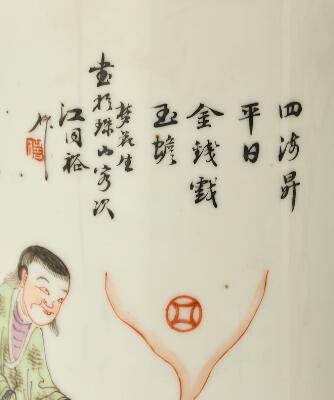 四海昇
平日
金錢戲
玉蟾
梦花生
書於珠山客次
江同裕
作